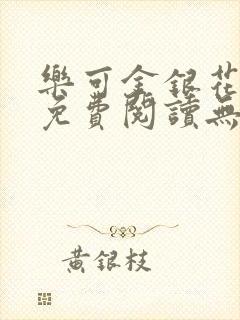 樂可金銀花
免費閱讀無
黃銀枝